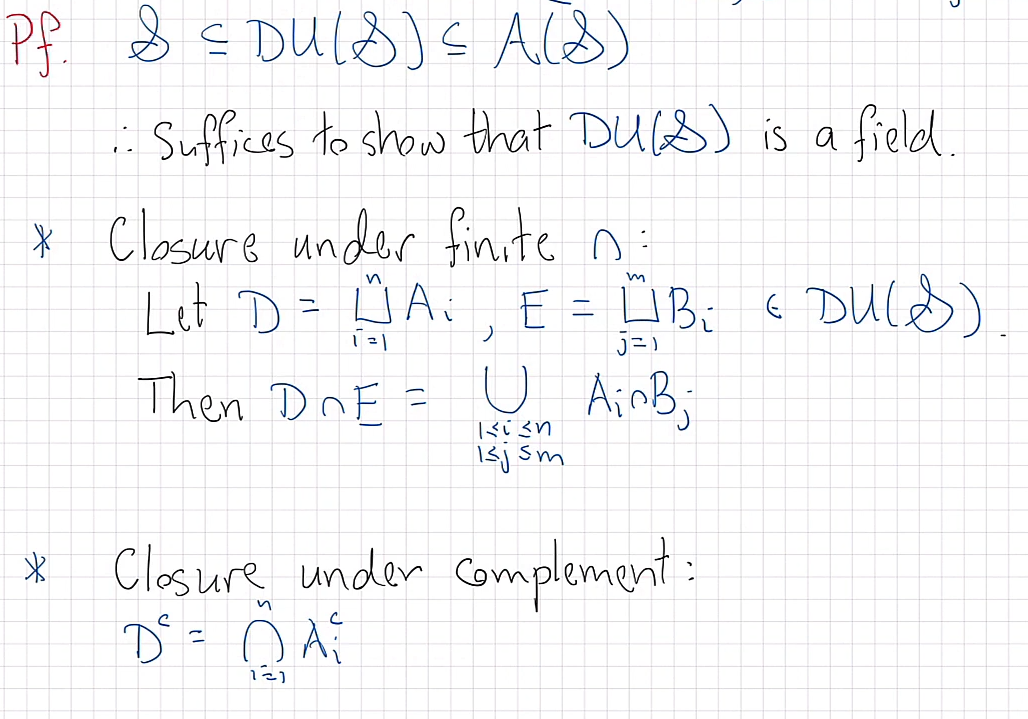 Pf. 𝒮 ⊆ DU(𝒮) ⊆ A(𝒮)
∴ Suffices to show that DU(𝒮) is a field.
* Closure under finite ∩ :
Let D = ⊔_{i=1}^{n} A_i , E = ⊔_{j=1}^{m} B_i ∈ DU(𝒮).
Then D∩E = ⋃_{1≤i≤n 1≤j≤m} A_i∩B_j
* Closure under complement :
D^c = ⋂_{i=1}^{n} A_i^c